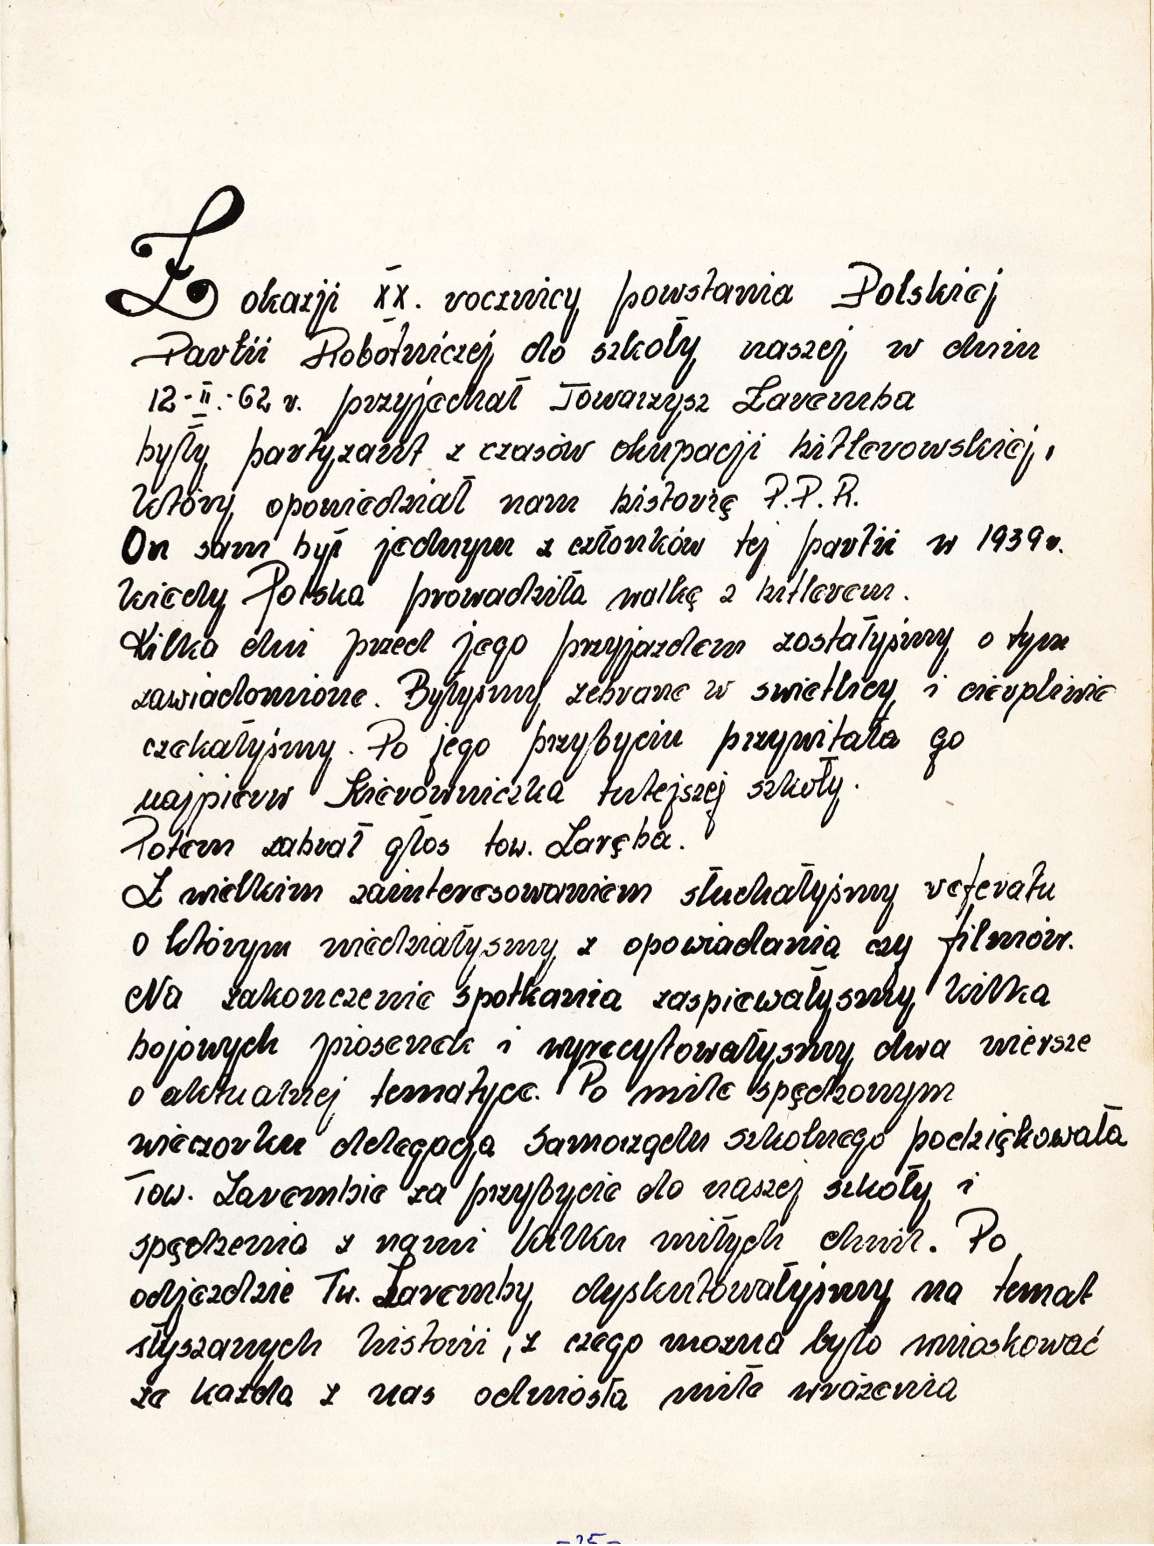 Z okazji XX. rocznicy powstania Polskiej
Partii Robotniczej do szkoły naszej w dniu
12-II.-62 r. przyjechał Towarzysz Zaremba
były partyzant z czasów okupacji hitlerowskiej,
który opowiedział nam historię P.P.R.
On sam był jednym z członków tej partii w 1939 r.
kiedy Polska prowadziła walkę z hitlerem.
Kilka dni przed jego przyjazdem zostałyśmy o tym
zawiadomione. Byłyśmy zebrane w swietlicy i cierpliwie
czekałyśmy. Po jego przybyciu przywitała go
najpierw Kierowniczka tutejszej szkoły.
Potem zabrał głos tow. Zaręba.
Z wielkim zainteresowaniem słuchałyśmy referatu
o którym wiedziałysmy z opowiadania czy filmów.
Na zakonczenie spotkania zaspiewałysmy kilka
bojowych piosenek i wyrecytowałysmy dwa wiersze
o aktualnej tematyce. Po mile spędzonym
wieczorku delegacja Samorzędu szkolnego podziękowała
Tow. Zarembie za przybycie do naszej szkoły i
spędzenia z nami kilku miłych chwil. Po
odjezdzie Tw. Zaremby dyskutowałyśmy na temat
słyszanych historii, z czego mozna było wnioskować
ze kazda z nas odniosła miłe wrażenia
-25-